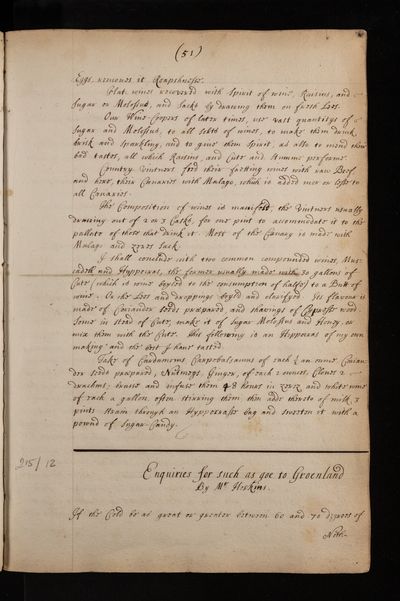 (51)
Eggs, removes it Reapishnesse.
Flat wines recovered with Spirit of wine, Raisins, and
Sugar or Molossus, and Sacks by drawing them on fresh Lees.
Our Wine-Coopers of later times, use vast quantitys of
Sugar and Molossus, to all sorts of wines, to make them drink
brisk and sparkling, and to give them Spirit, as also to mend their
bad tastes, all which Raisins, and Cute and Stumme performe.
Country Vintners feed their fretting wines with raw Beef
and here, their Canaries with Malago, which is added more or lesse to
all Canaries.
The Composition of wines is manifold, the Vintners usually
drawing out of 2 or 3 Casks, for one pint to accommodate it to the
pallate of those that drink it. Most of the Canary is made with
Malago and Zeres Sack.
I shall conclude with two common compounded wines, Mus-
cadell and Hippocras, the former usually made with 30 gallons of
Cute (which is wine boyled to the consumption of halfe) to a Butt of
wine. Or the Lees and droppings boyld and clarifyed. Its flavour is
made of Coriander Seeds prepared, and shavings of Cypresse wood.
Some in stead of Cute, make it of Sugar Molossus and Honey, or
mix them with the Cute. This following is an Hippocras of my own
making and the best I have tasted.
Take of Cardamoms Carpobalsamum of each ½ an ounce Corian-
der seeds prepared, Nutmegs, Ginger, of each 2 ounces, Cloves 2
drachms; bruise and infuse them 48 hours in Zeres and white wine
of each a gallon, often stirring them then adde thereto of milk 3
pints strain through an Hyppocrasse bag and sweeten it with a
pound of Sugar-Candy.
215/12
Enquiries for such as goe to Groenland
By Mr Hoskins.
If the Cold be as great or greater between 60 and 70 degrees of
North-